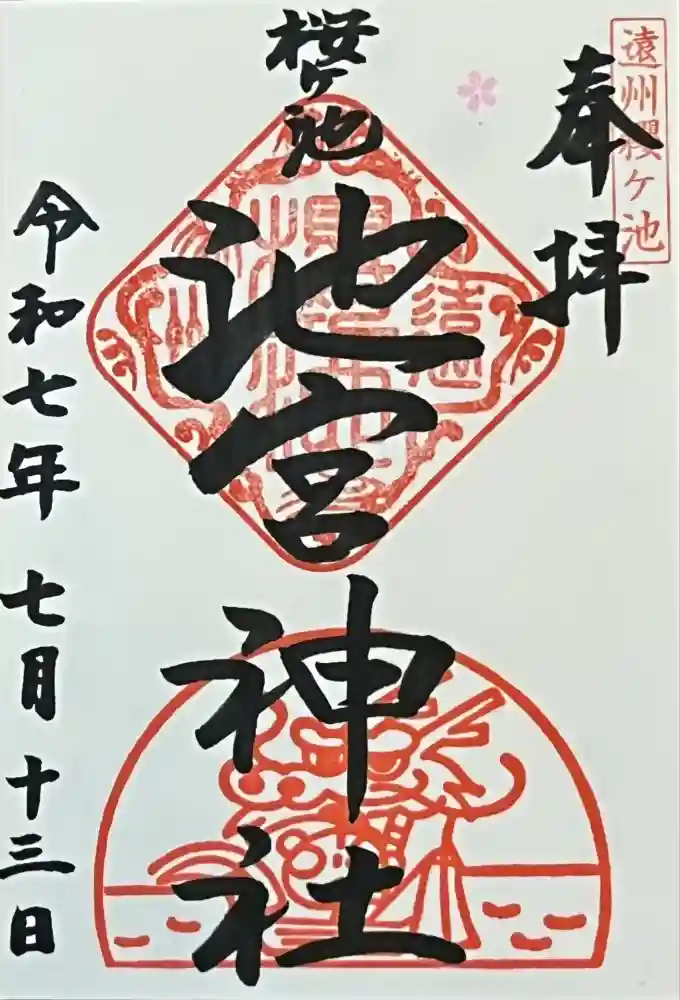 遠州櫻ヶ池
奉拝
桜ヶ池
池宮神社
令和七年七月十三日